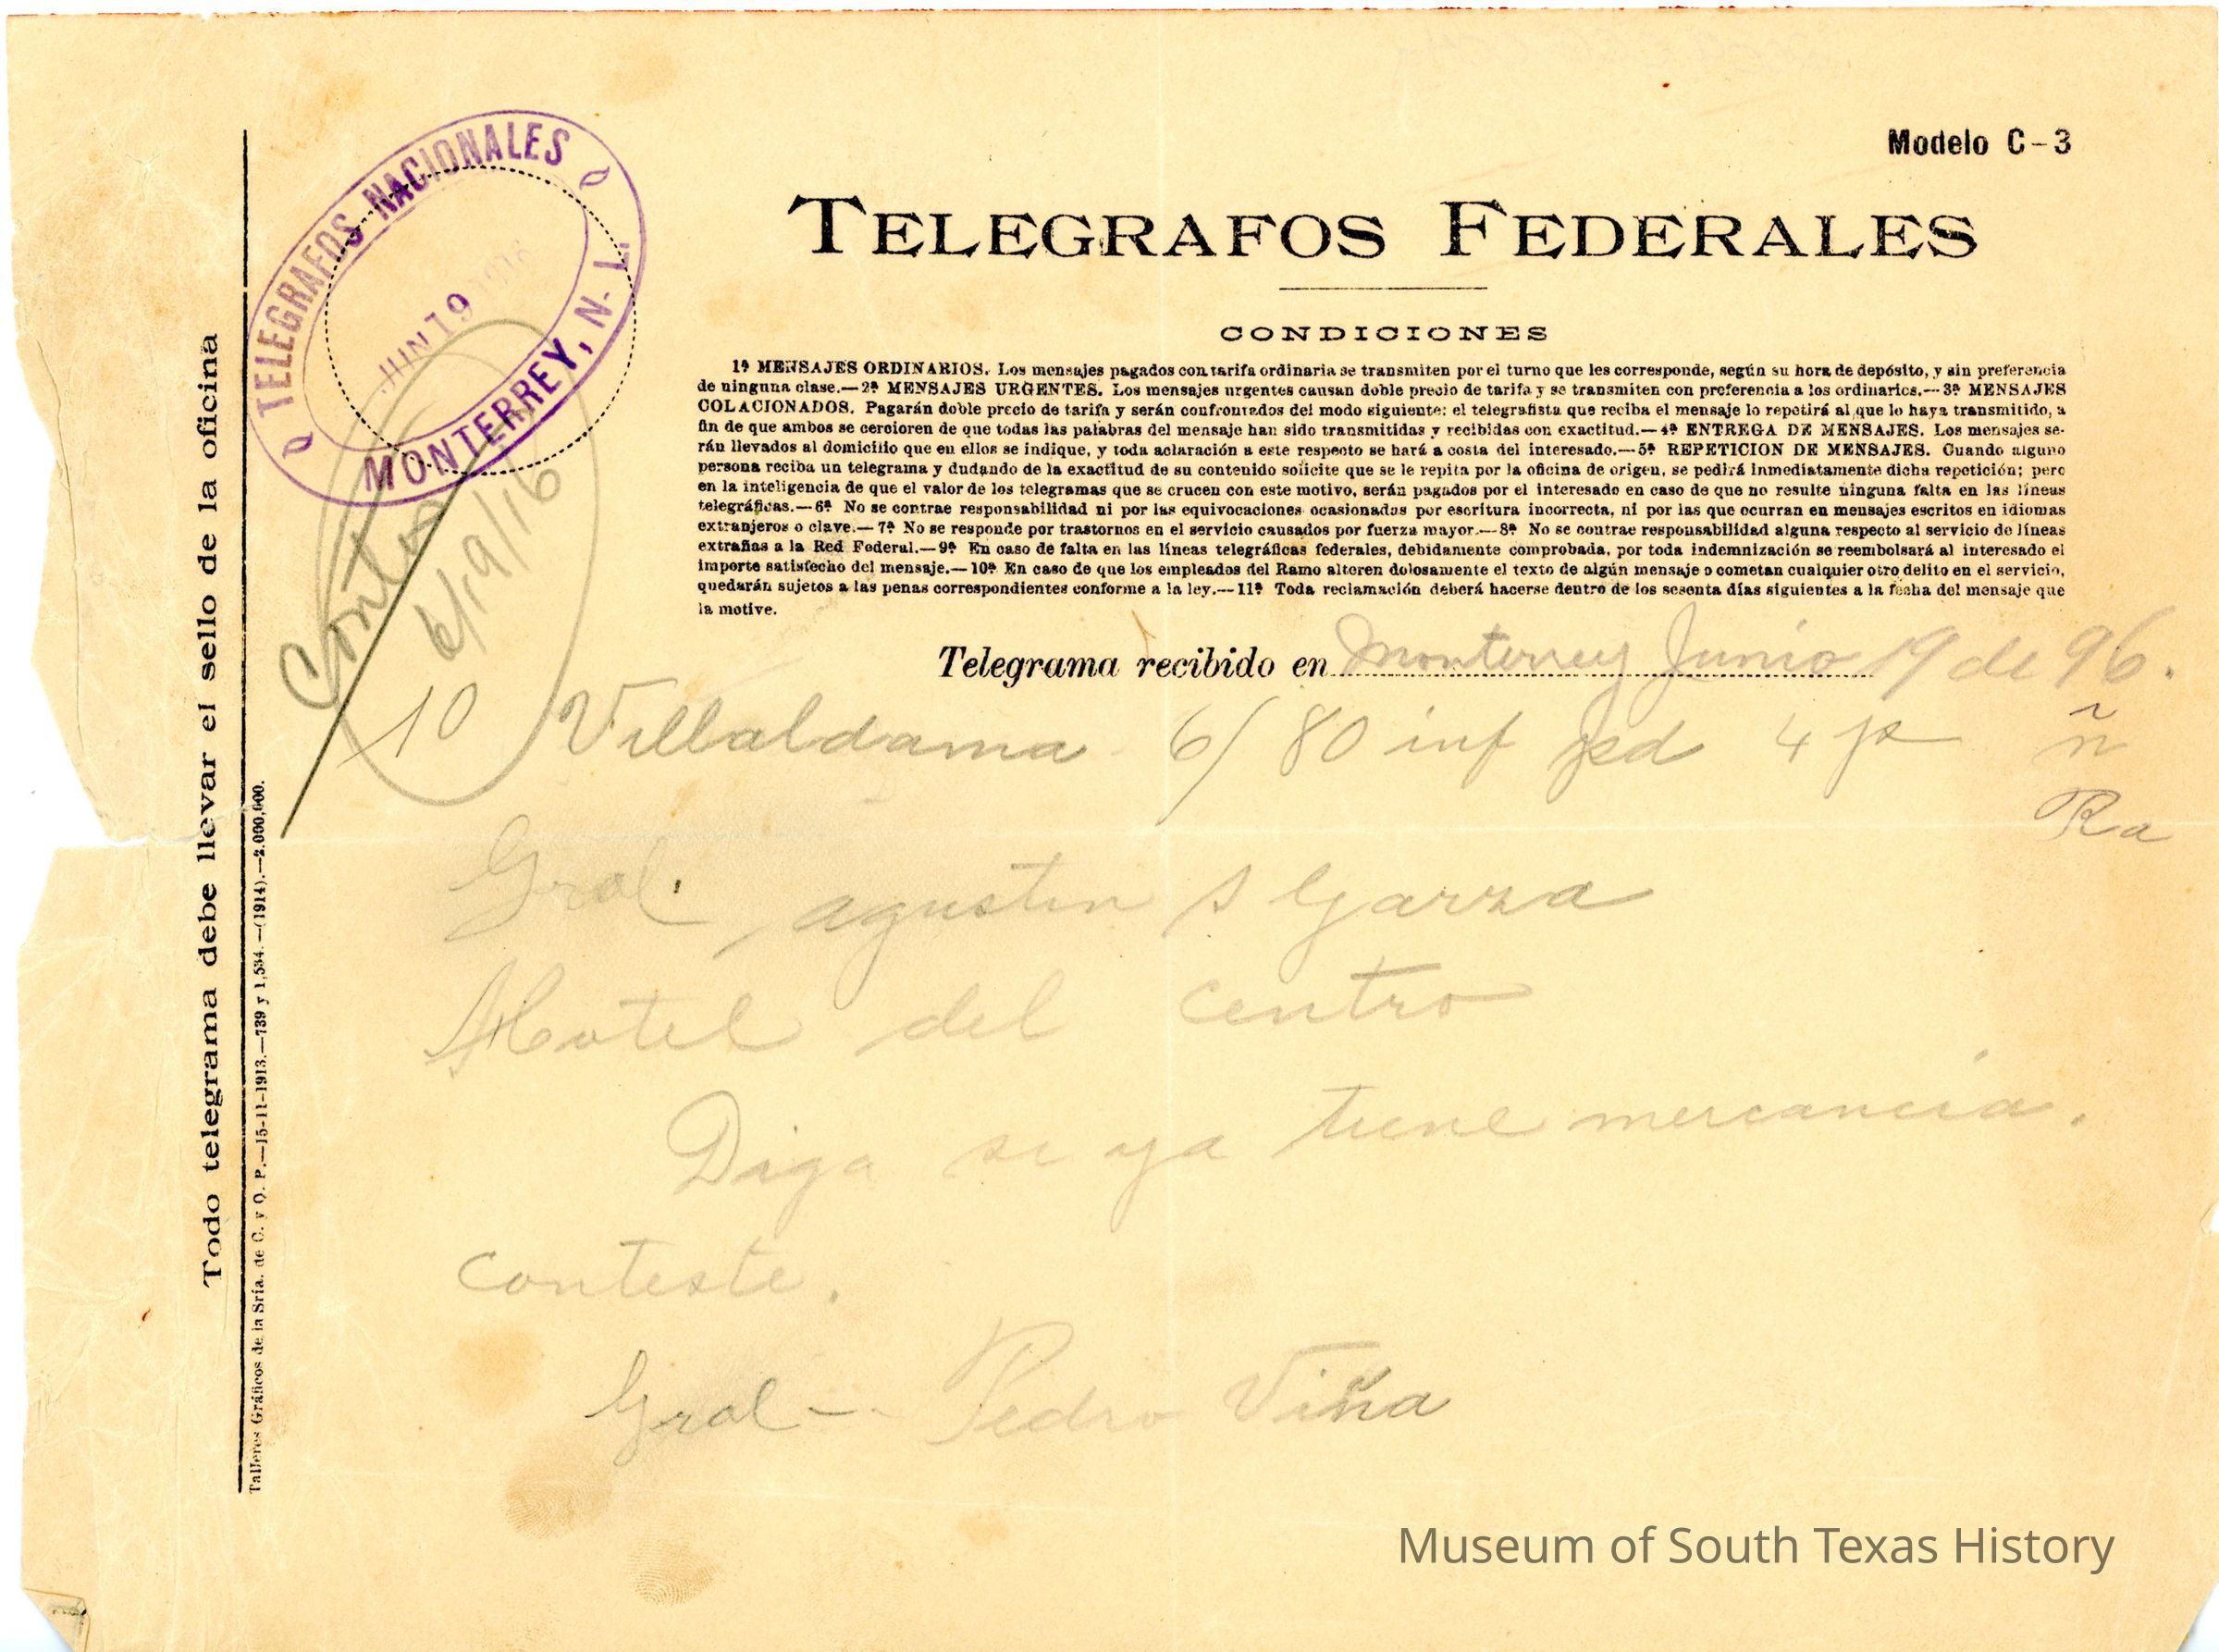 Modelo C-3
TELEGRAFOS FEDERALES
CONDICIONES
1ª MENSAJES ORDINARIOS. Los mensajes pagados con tarifa ordinaria se transmiten por el turno que les corresponde, según su hora de depósito, y sin preferencia
de ninguna clase.—2ª MENSAJES URGENTES. Los mensajes urgentes causan doble precio de tarifa y se transmiten con preferencia a los ordinarios.—3ª MENSAJES
COLACIONADOS. Pagarán doble precio de tarifa y serán confrontados del modo siguiente: el telegrafista que reciba el mensaje lo repetirá al que lo haya transmitido, a
fin de que ambos se cercioren de que todas las palabras del mensaje han sido transmitidas y recibidas con exactitud.—4ª ENTREGA DE MENSAJES. Los mensajes se-
rán llevados al domicilio que en ellos se indique, y toda aclaración a este respecto se hará a costa del interesado.—5ª REPETICION DE MENSAJES. Cuando alguno
persona reciba un telegrama y dudando de la exactitud de su contenido solicite que se le repita por la oficina de origen, se pedirá inmediatamente dicha repetición; pero
en la inteligencia de que el valor de los telegramas que se crucen con este motivo, serán pagados por el interesado en caso de que no resulte ninguna falta en las líneas
telegráficas.—6ª No se contrae responsabilidad ni por las equivocaciones ocasionadas por escritura incorrecta, ni por las que ocurran en mensajes escritos en idiomas
extranjeros o clave.—7ª No se responde por trastornos en el servicio causados por fuerza mayor.—8ª No se contrae responsabilidad alguna respecto al servicio de líneas
extrañas a la Red Federal.—9ª En caso de falta en las líneas telegráficas federales, debidamente comprobada, por toda indemnización se reembolsará al interesado el
importe satisfecho del mensaje.—10ª En caso de que los empleados del Ramo alteren dolosamente el texto de algún mensaje o cometan cualquier otro delito en el servicio,
quedarán sujetos a las penas correspondientes conforme a la ley.—11ª Toda reclamación deberá hacerse dentro de los sesenta días siguientes a la fecha del mensaje que
la motive.
TELEGRAFOS NACIONALES
JUN 19
MONTERREY, N. L.
6/19/16
Telegrama recibido en Monterrey Junio 19 de 96.
10 Villaldama 6/ 80 inf 4 ñ
Ra
Gral. agustin S Garza
Hotel del centro
Diga si ya tiene mercancia.
conteste.
Gral - Pedro Viña
Todo telegrama debe llevar el sello de la oficina
Talleres Gráficos de la Sria. de C. y O. P.—15-11-1913.—739 y 1,534.—(1914).—2.000,000.
Museum of South Texas History